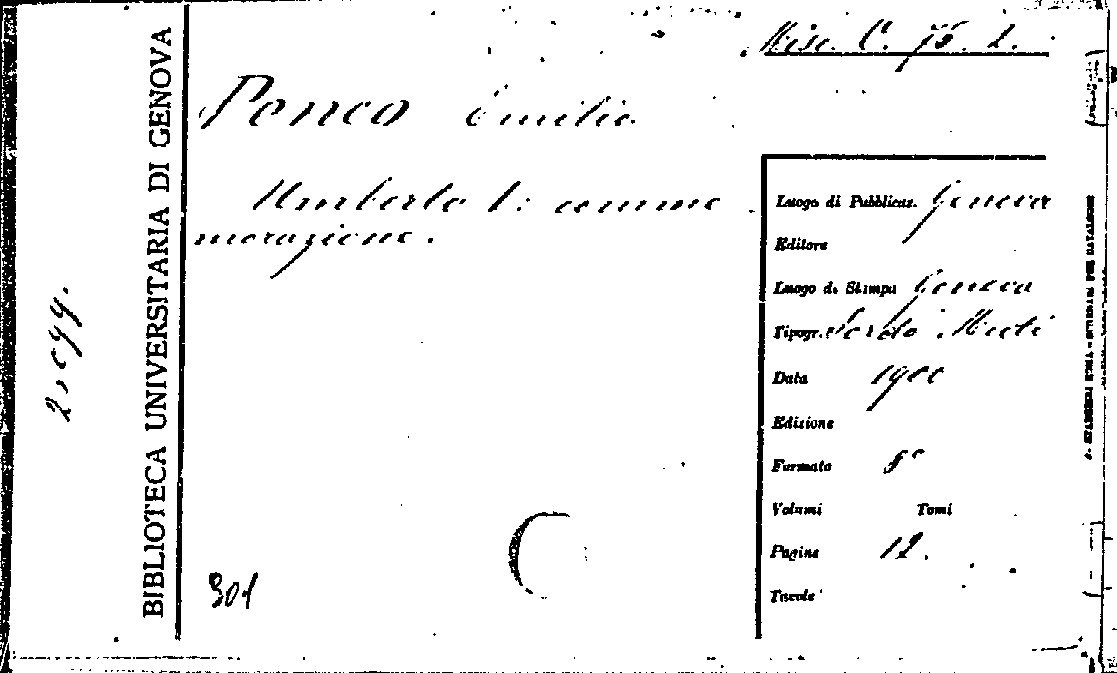 Misc. C. 75. 2.
Penco Emilio
Umberto I: comme
morazione.
BIBLIOTECA UNIVERSITARIA DI GENOVA
Luogo di Pubblicaz. Genova
Editore
Luogo di Stampa Genova
Tipogr.
Data 1900
Edizione
Formato 8°
Volumi Tomi
Pagine 12.
Tavole
301